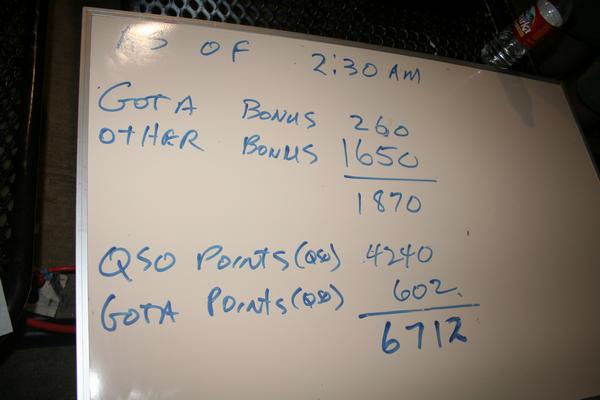 AS OF 2:30 AM
GOTA BONUS 260
OTHER BONUS 1650
1870
QSO POINTS (QSO) 4240
GOTA POINTS (QSO) 602
6712